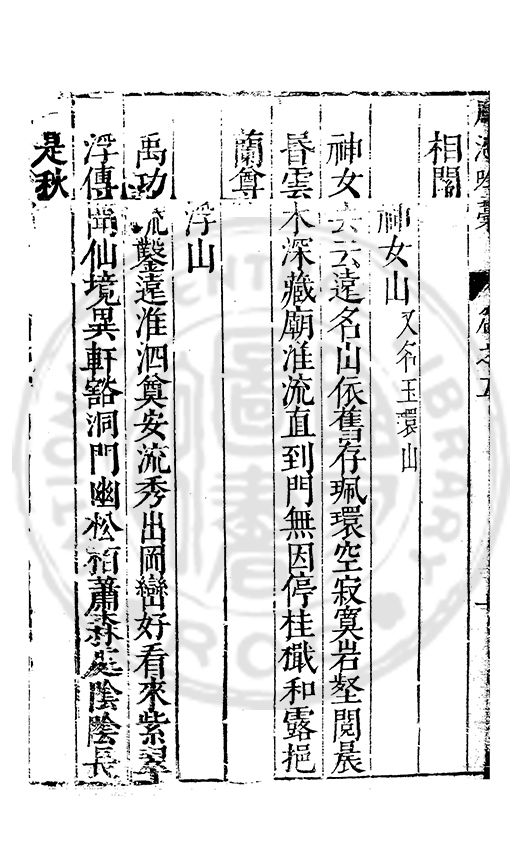 相關
神女山又名玉環山
神女去云遠名山依舊存珮環空寂寞岩壑閱晨
昏雲木深藏廟淮流直到門無因停桂檝和露挹
蘭尊
浮山
禹功疏鑿遠淮泗奠安流秀出岡巒好看來紫翠
浮傳尚仙境異軒豁洞門幽松栢蕭森處陰陰長
是秋